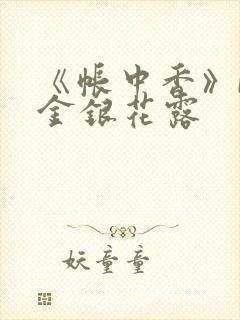 《帐中香》
金银花露
妖童童